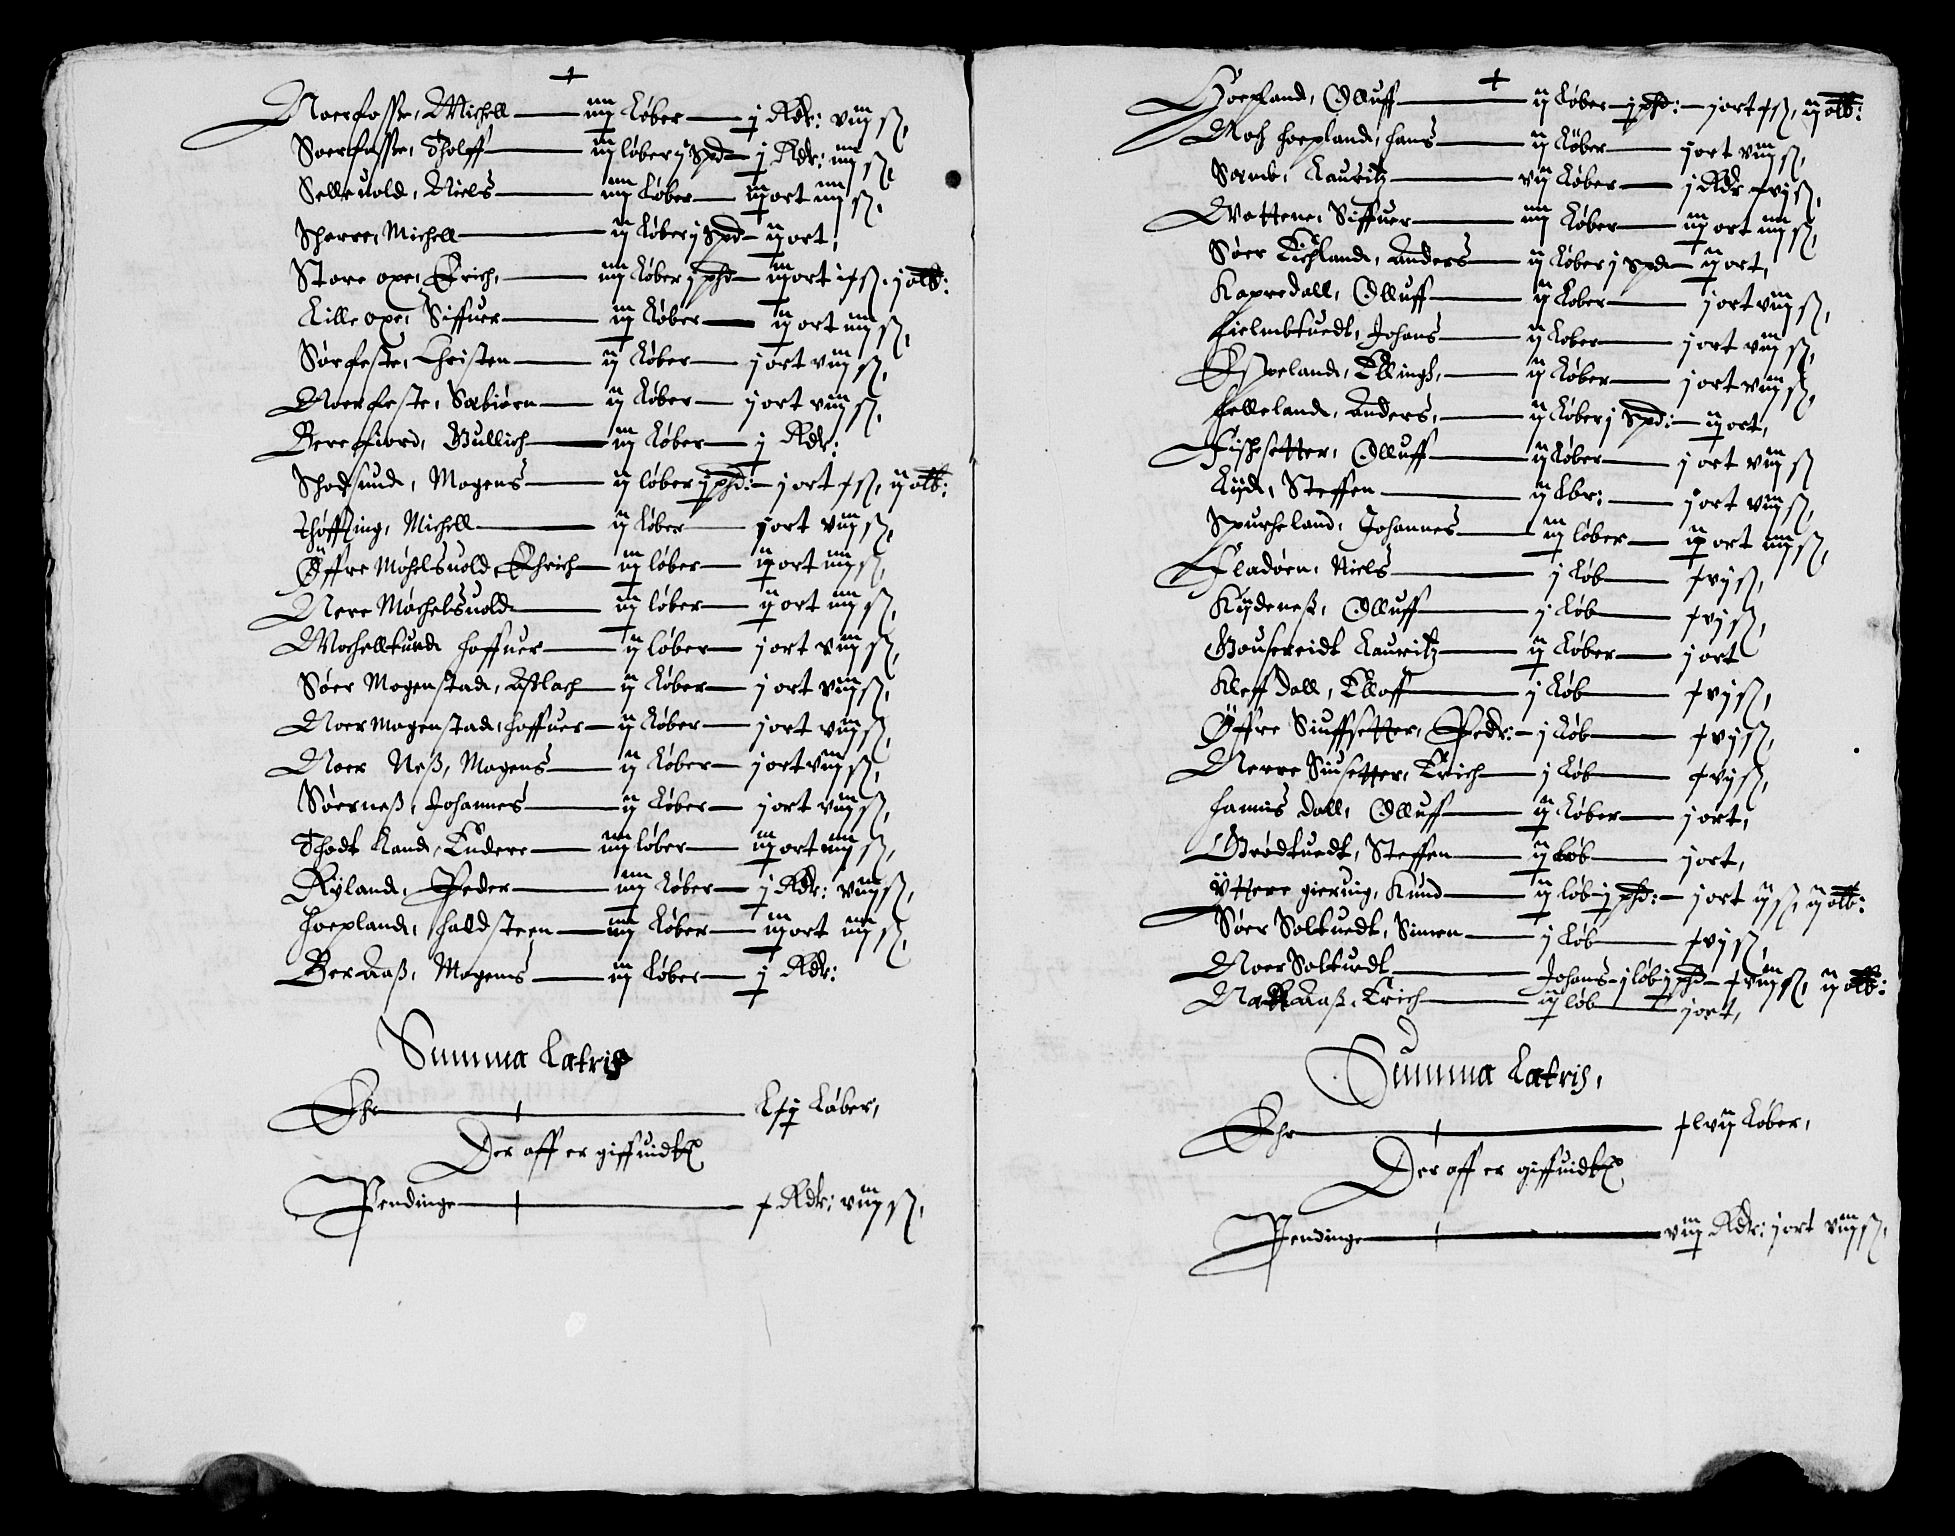 Noerfosse, Michell — iiij Løber — j Rdr: viij ß,
Soerfosse, Tholff — iij løber j Spd — j Rdr: iiij ß,
Selleuold, Niels — iiij Løber — iij ort iiij ß,
Sperre, Michell — ij Løber j Spd — ij ort,
Store oxe, Erich, — iiij Løber j phd — iij ort xx ß, j alb:
Lille oxe, Siffuer — iij Løber — ij ort iiij ß,
Sørfeste, Christen — ij Løber — j ort viij ß,
Noerfeste, Sebiørn — ij Løber — j ort viij ß,
Berefiord, Gullich — iiij Løber — j Rdr:
Skodsund, Mogens — ij løber j phd: — j ort x ß, ij alb:
Michell — ij Løber — j ort viij ß,
Øffre Møchelsuold, Ehrich — iij løber — ij ort iiij ß,
Nere Møchelsuold — iij løber — ij ort iiij ß,
Mochelltued hoffuer — ij løber — j ort viij ß,
Søer Mogenstad, Asslach — ij Løber — j ort viij ß,
Noer Mogenstad, hoffuer — ij Løber — j ort viij ß,
Noer Neß, Mogens — ij Løber — j ort viij ß,
Søerneß, Johannes — ij Løber — j ort viij ß,
Thodt Land, Endere — iiij løber — iij ort iiij ß,
Ryland, Peder — iiij Løber — j Rdr: viij ß,
hopland, haldsteen — iiij Løber — iij ort iiij ß,
Ber Aaß, Mogens — iij Løber — j Rdr:
Summa Latris
Ehr — Lxij Løber,
Der aff er giffuidt
Pendinge — x Rdr: viij ß,
Hopland, Olluff — ij Løber j phd: — j ort x ß, ij alb:
Noch hopland, hans — ij Løber — j ort viij ß,
Særvb, Lauritz — vij Løber — j Rdr xvj ß,
Vattene, Siffuer — iiij Løber — iij ort iiij ß,
Søer Tichland, Anders — ij Løber j Spd — ij ort,
Kopredall, Olluff — ij Løber — j ort viij ß,
hielmbtuedt, Johans — ij Løber — j ort viij ß,
Espeland, Ellingh, — ij Løber — j ort viij ß,
helleland, Anders, — ij Løber j Spd: — ij ort,
Fischsetter, Olluff — ij Løber — j ort viij ß
Lyd, Steffen — ij Lbr: — j ort viij ß,
Spurcheland, Johannes — iij løber — ij ort iiij ß,
Fladøen, Niels — j Løb — xvj ß,
Kydeneß, Olluff — j Løb — xvj ß,
Gousereidt Lauritz — ij Løber — j ort
Kleff Dall, Elloff — j Løb — xvj ß,
Øffre Siuffsetter, Pedr: — j Løb — xvj ß,
Nerre Siusetter, Erich — j Løb — xvj ß,
hannis dall, Olluff — ij Løber — j ort,
Brødtuedt, Steffen — ij Løb — j ort,
Yttere gieruig, Knud — ij løb j phd: — j ort ij ß, ij alb:
Søer Soltuedt, Simen — j Løb — xvj ß,
Noer Soltuedt — Johans — j løb j phd — xviij ß, ij alb:
Aaß, Erich — ij løb — j ort,
Summa Latris,
Ehr — xlvij Løber,
Der aff er giffuidt
Pendinge — viij Rdr: j ort viij ß,